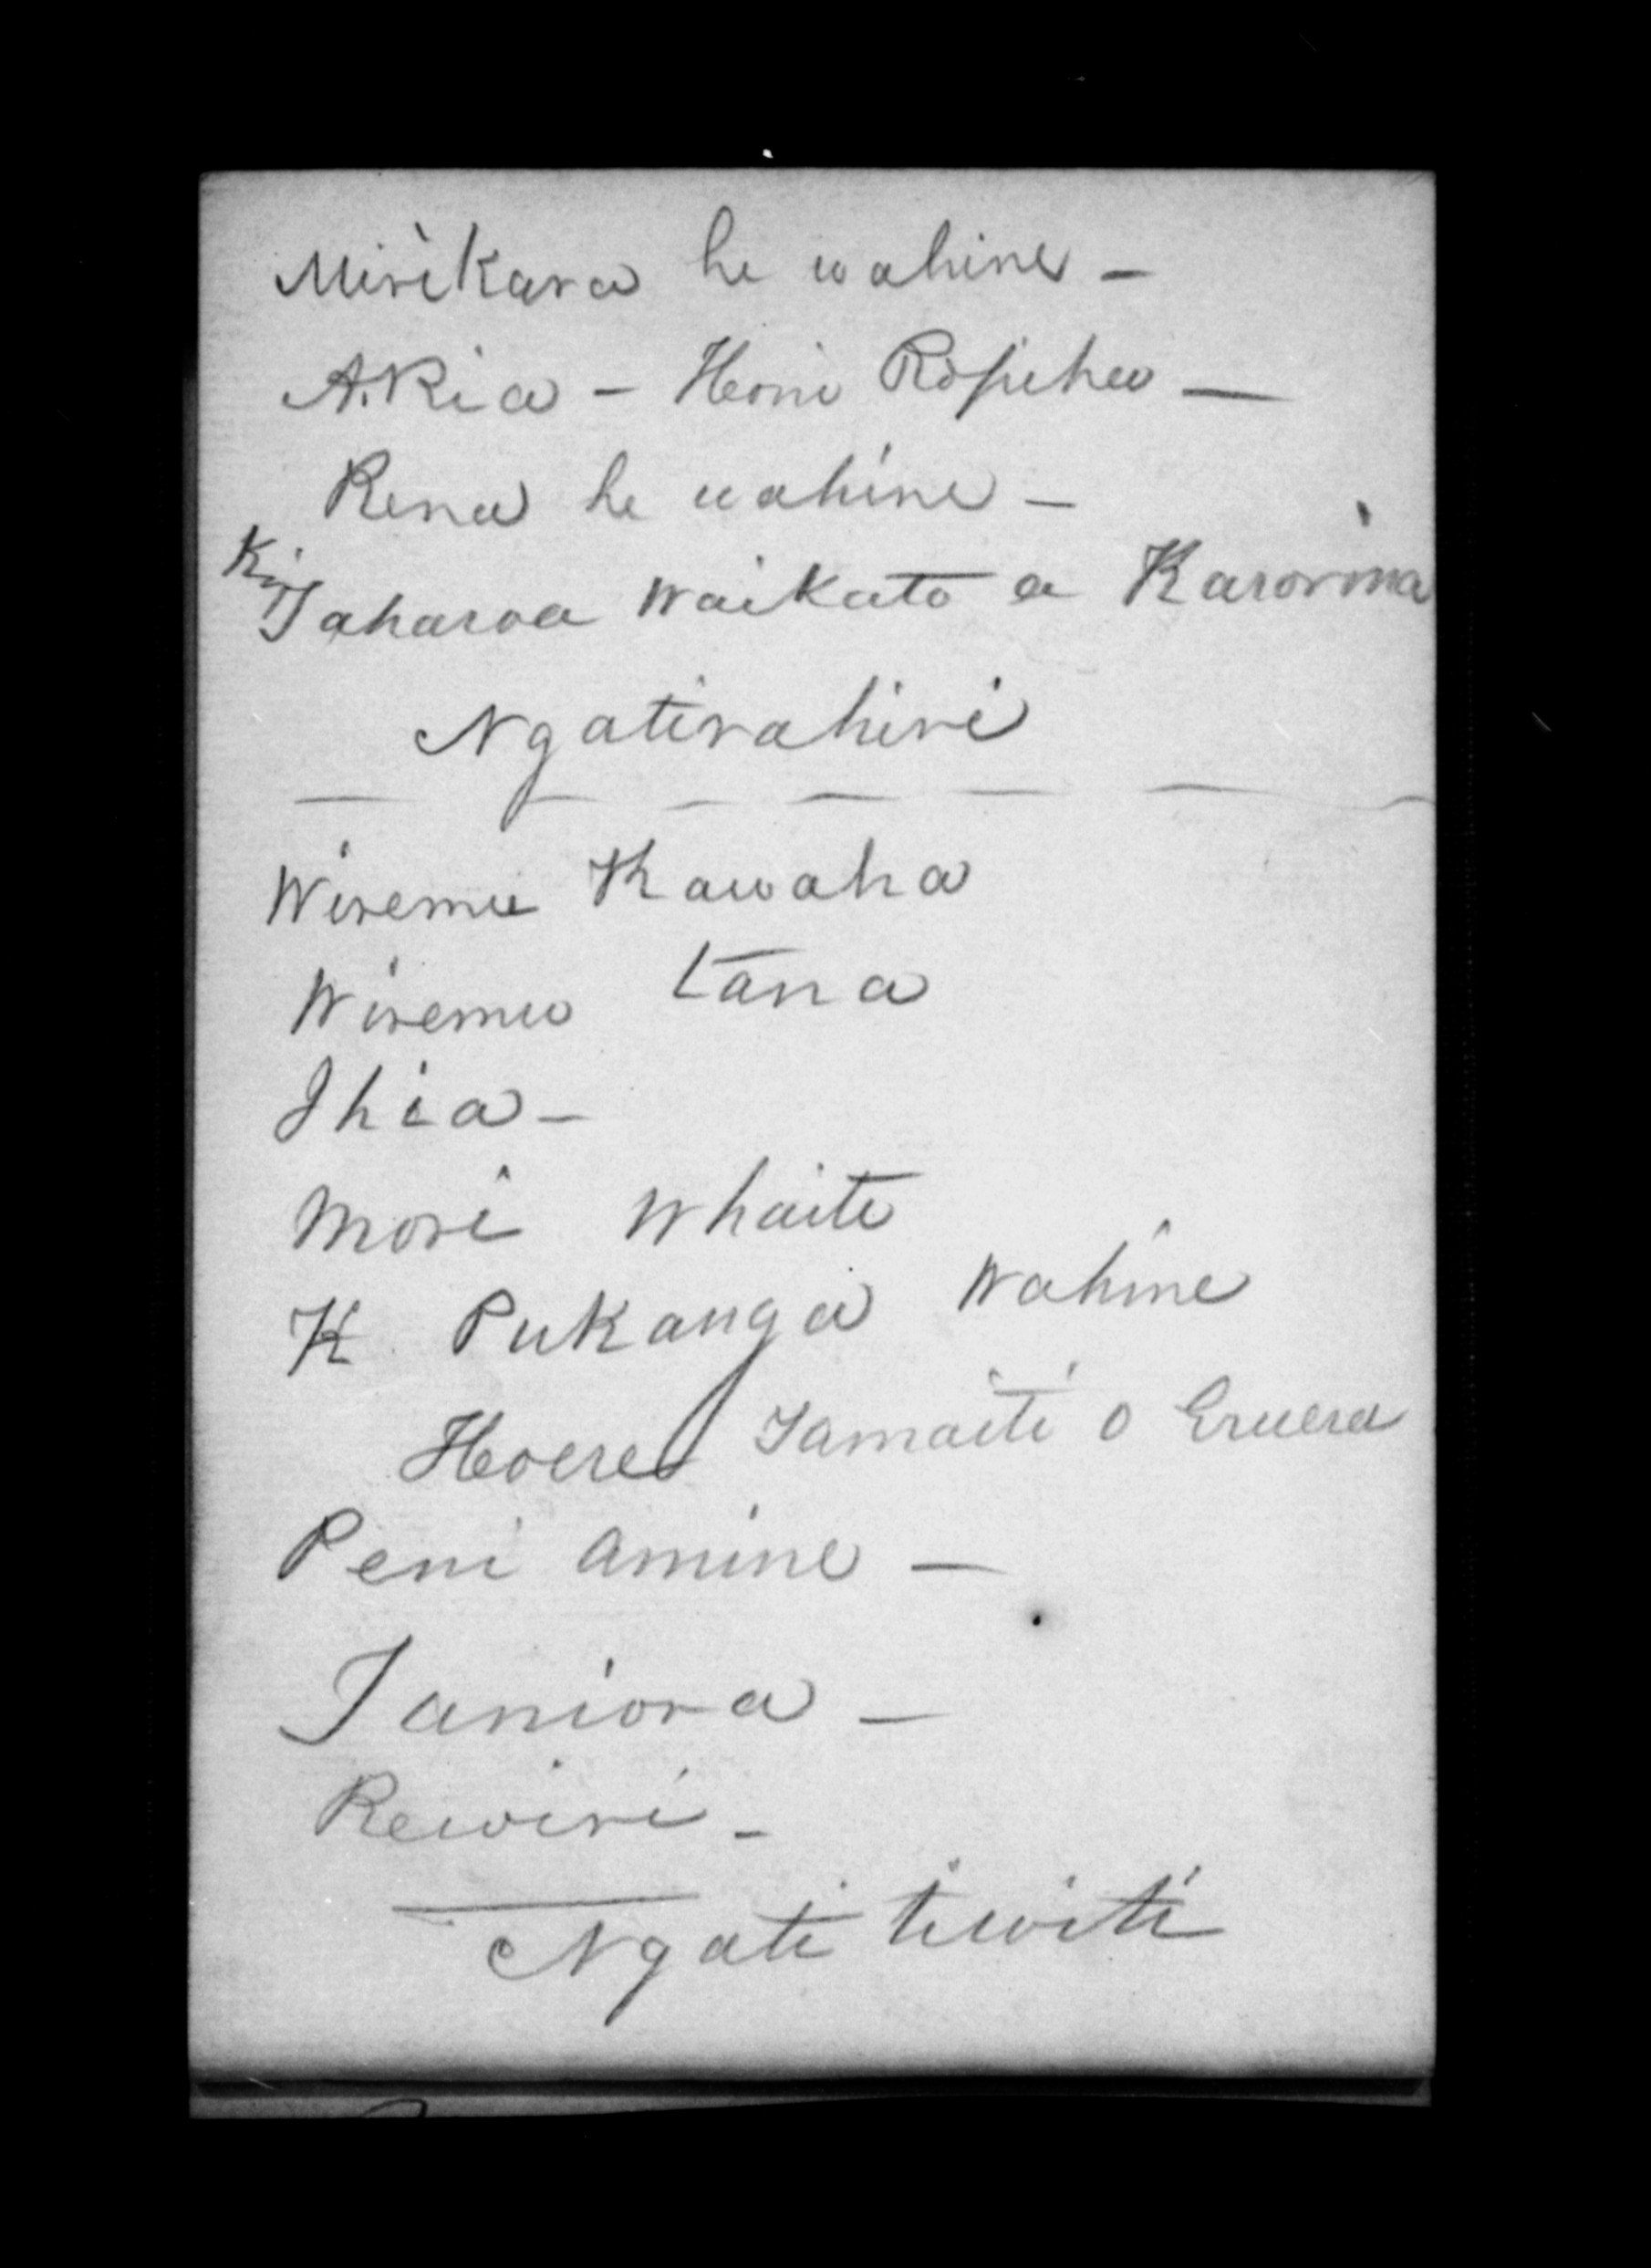 Mirikara he wahine –
A. Ria – Heoni Ropiha –
Rena he wahine –
Ki Taharoa Waikato a Karorima
Ngatirahiri
Wiremu Kawaha
Wiremu tana
Ihia –
Mori Whaiti
K Pukanga Wahine
Hoera Tamaiti o Eruera
Peni Amine –
Taniora –
Rewiri –
Ngati tiwiti